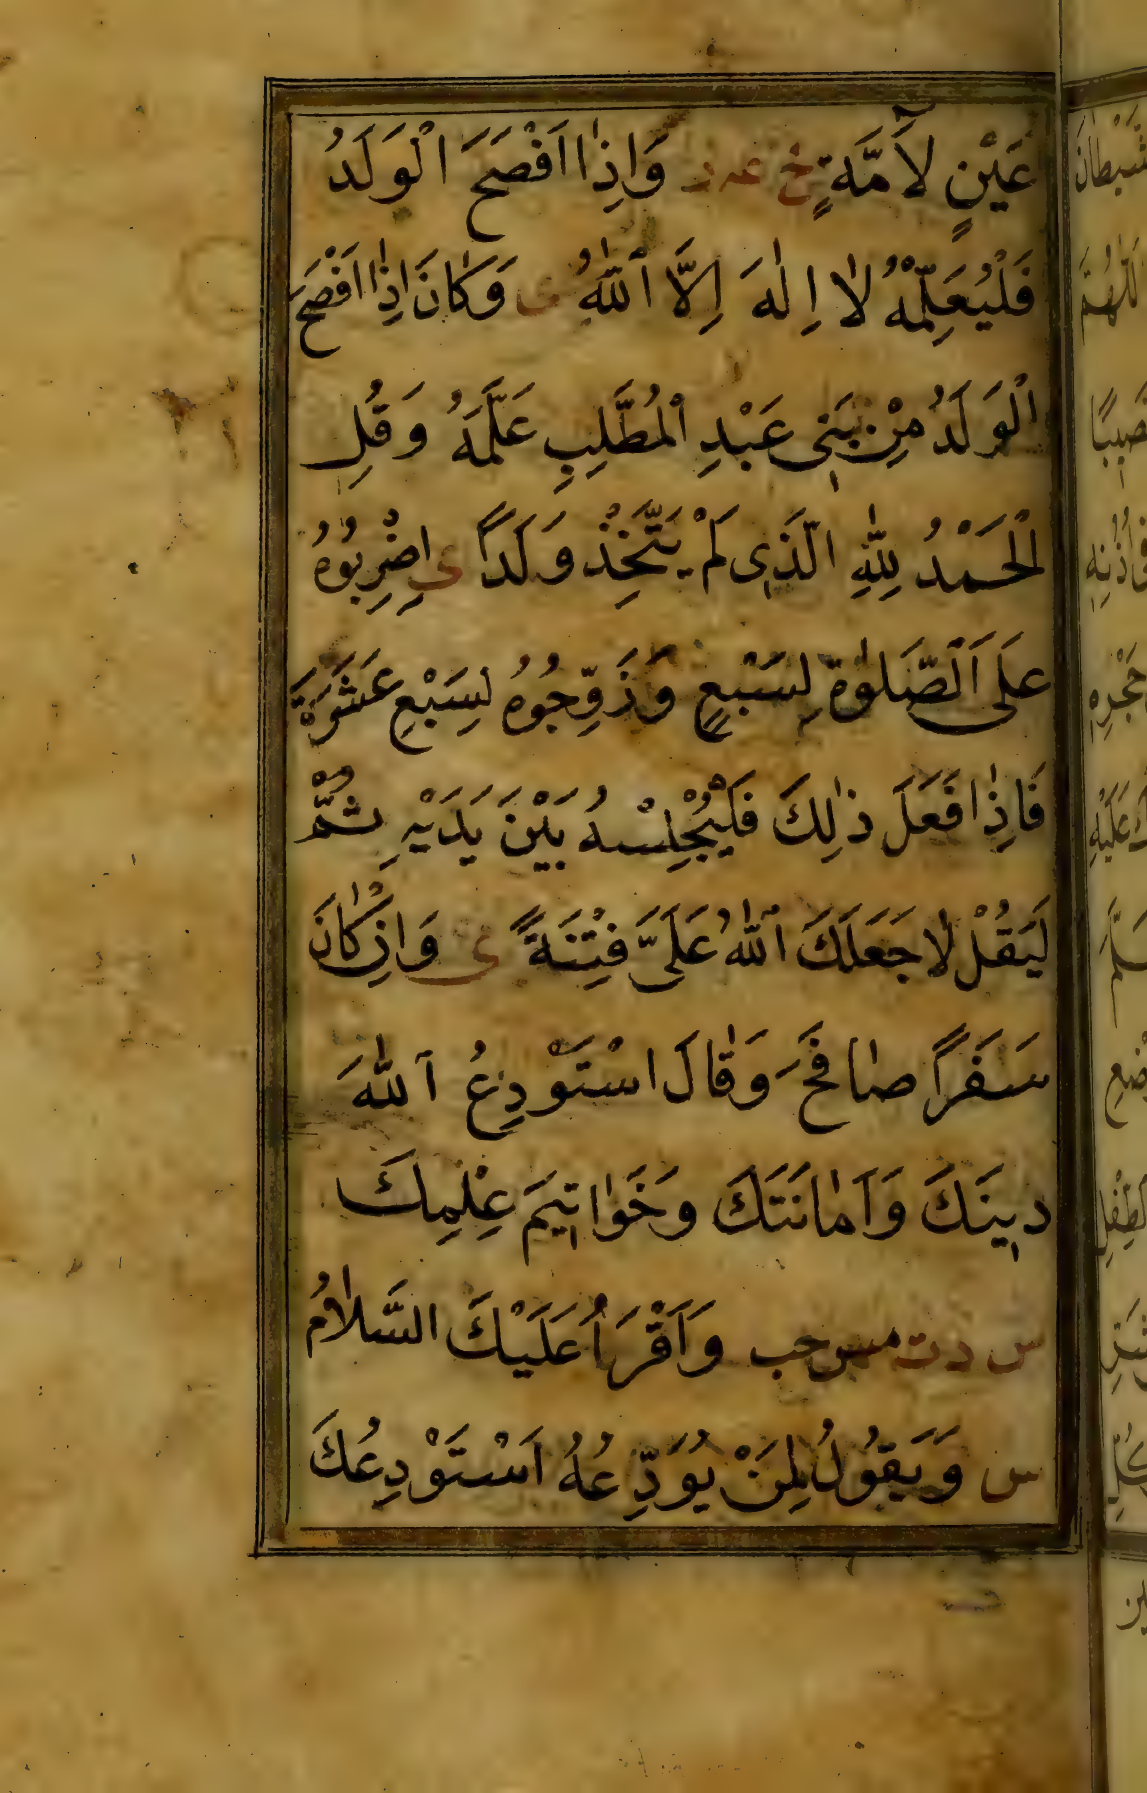 عَيْنٍ لَآمَّةٍ خ عه ر وَاِذَا اَفْصَحَ الْوَلَدُ
فَلْيُعَلِّمْهُ لَا اِلٰهَ اِلَّا اللّٰهُ ى وَكَانَ اِذَا اَفْصَحَ
الْوَلَدُ مِنْ بَنِى عَبْدِ الْمُطَّلِبِ عَلَّمَهُ وَقُلِ
الْحَمْدُ لِلّٰهِ الَّذِى لَمْ يَتَّخِذْ وَلَدًا ى اِضْرِبُوهُ
عَلَى الصَّلٰوةِ لِسَبْعٍ وَزَوِّجُوهُ لِسَبْعِ عَشَرَةَ
فَاِذَا فَعَلَ ذٰلِكَ فَلْيُجْلِسْهُ بَيْنَ يَدَيْهِ ثُمَّ
لَيَقُلْ لَا جَعَلَكَ اللّٰهُ عَلَىَّ فِتْنَةً ى وَاِنْ كَانَ
سَفَرًا صَافَحَ وَقَالَ اسْتَوْدِعُ اللّٰهَ
دِينَكَ وَاَمَانَتَكَ وَخَوَاتِيمَ عِلْمِكَ
س د ت مس حب وَاَقْرَاُ عَلَيْكَ السَّلَامُ
س وَيَقُولُ لِمَنْ يُوَدِّعُهُ اَسْتَوْدِعُكَ